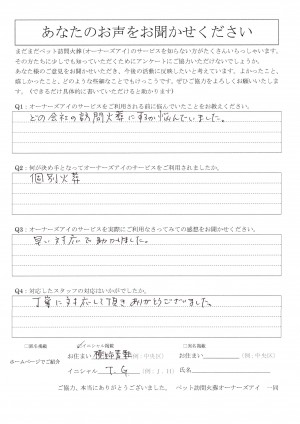 あなたのお声をお聞かせください
まだまだペット訪問火葬(オーナーズアイ)のサービスを知らない方がたくさんいらっしゃいます。
その方たちに少しでも知っていただくためにアンケートにご協力いただけないでしょうか。
あなた様のご意見をお聞かせいただき、今後の活動に反映したいと考えています。よかったこと、
嬉しかったこと、どのような些細なことでもけっこうです。ぜひご協力をよろしくお願いいたしま
す。(できるだけ具体的に書いていただけると助かります)
Q1：オーナーズアイのサービスをご利用される前に悩んでいたことをお教えください。
どの会社の訪問火葬にするか悩んでいました。
Q2：何が決め手となってオーナーズアイのサービスをご利用されましたか。
個別火葬
Q3：オーナーズアイのサービスを実際にご利用なさってみての感想をお聞かせください。
早い対応で助かりました。
Q4：対応したスタッフの対応はいかがでしたか。
丁寧に対応して頂きありがとうございました。
ホームページでご紹介
□匿名掲載
☑イニシャル掲載
□実名掲載
お住まい
(例：中央区)
イニシャル T.G (例：J．H)
お住まい (例：中央区)
氏名
ご協力、本当にありがとうございました。 ペット訪問火葬オーナーズアイ 一同